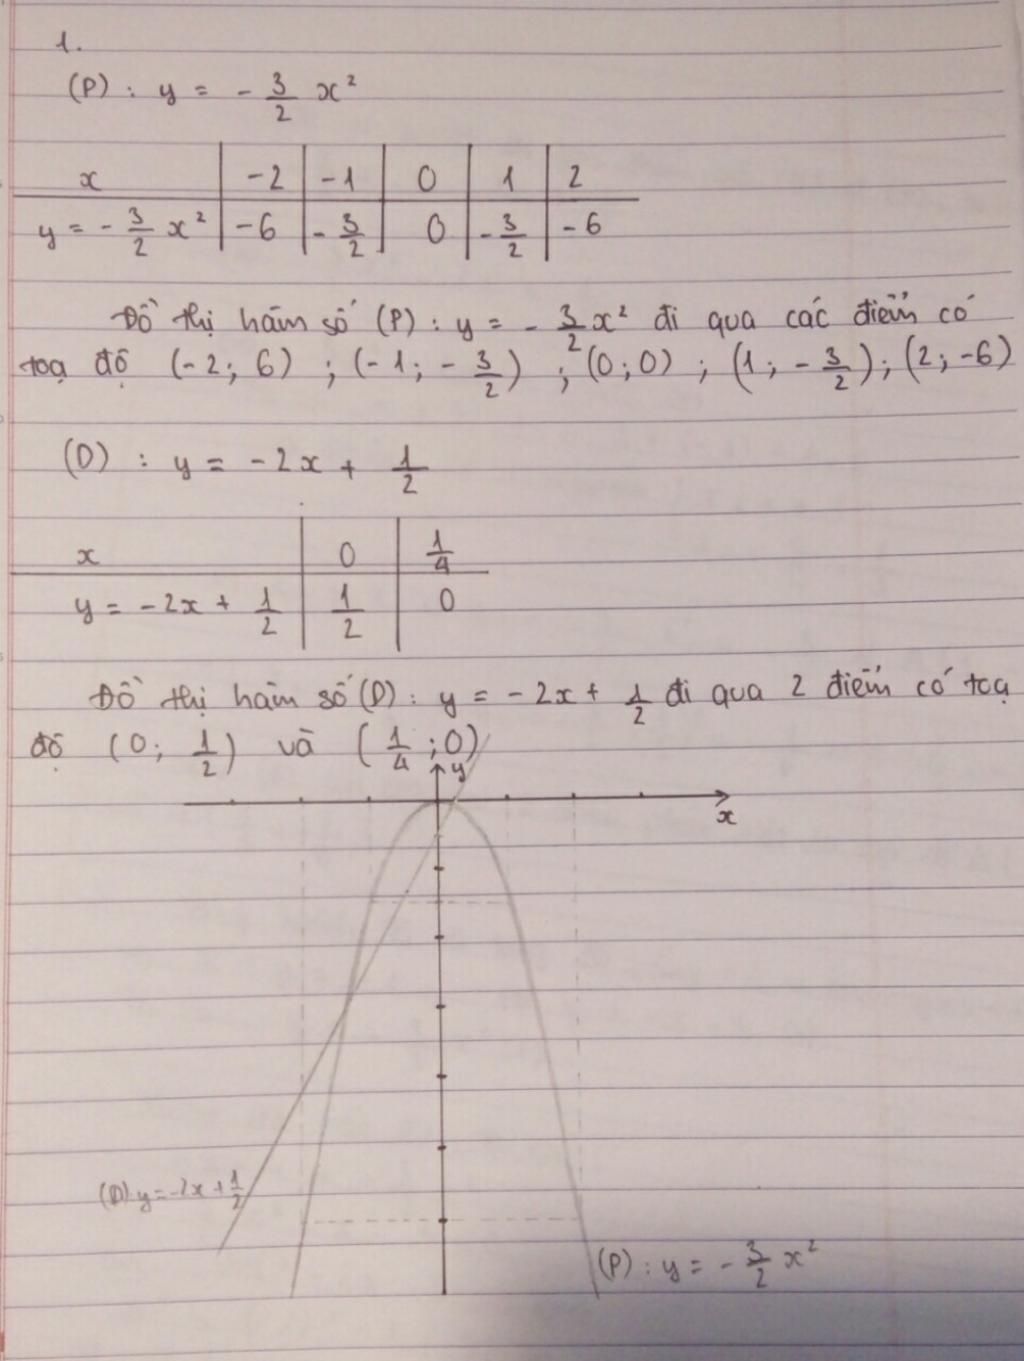 1.
(P) : y = - 3/2 x²
x | -2 | -1 | 0 | 1 | 2
y = - 3/2 x² | -6 | - 3/2 | 0 | - 3/2 | -6
Đồ thị hàm số (P) : y = - 3/2 x² đi qua các điểm có
toạ độ (-2; 6) ; (-1; - 3/2) ; (0;0) ; (1; - 3/2) ; (2; -6)
(D) : y = -2x + 1/2
x | 0 | 1/4
y = -2x + 1/2 | 1/2 | 0
Đồ thị hàm số (D) : y = -2x + 1/2 đi qua 2 điểm có toạ
độ (0; 1/2) và (1/4 ; 0)
y
x
(D) y = -2x + 1/2
(P) : y = - 3/2 x²